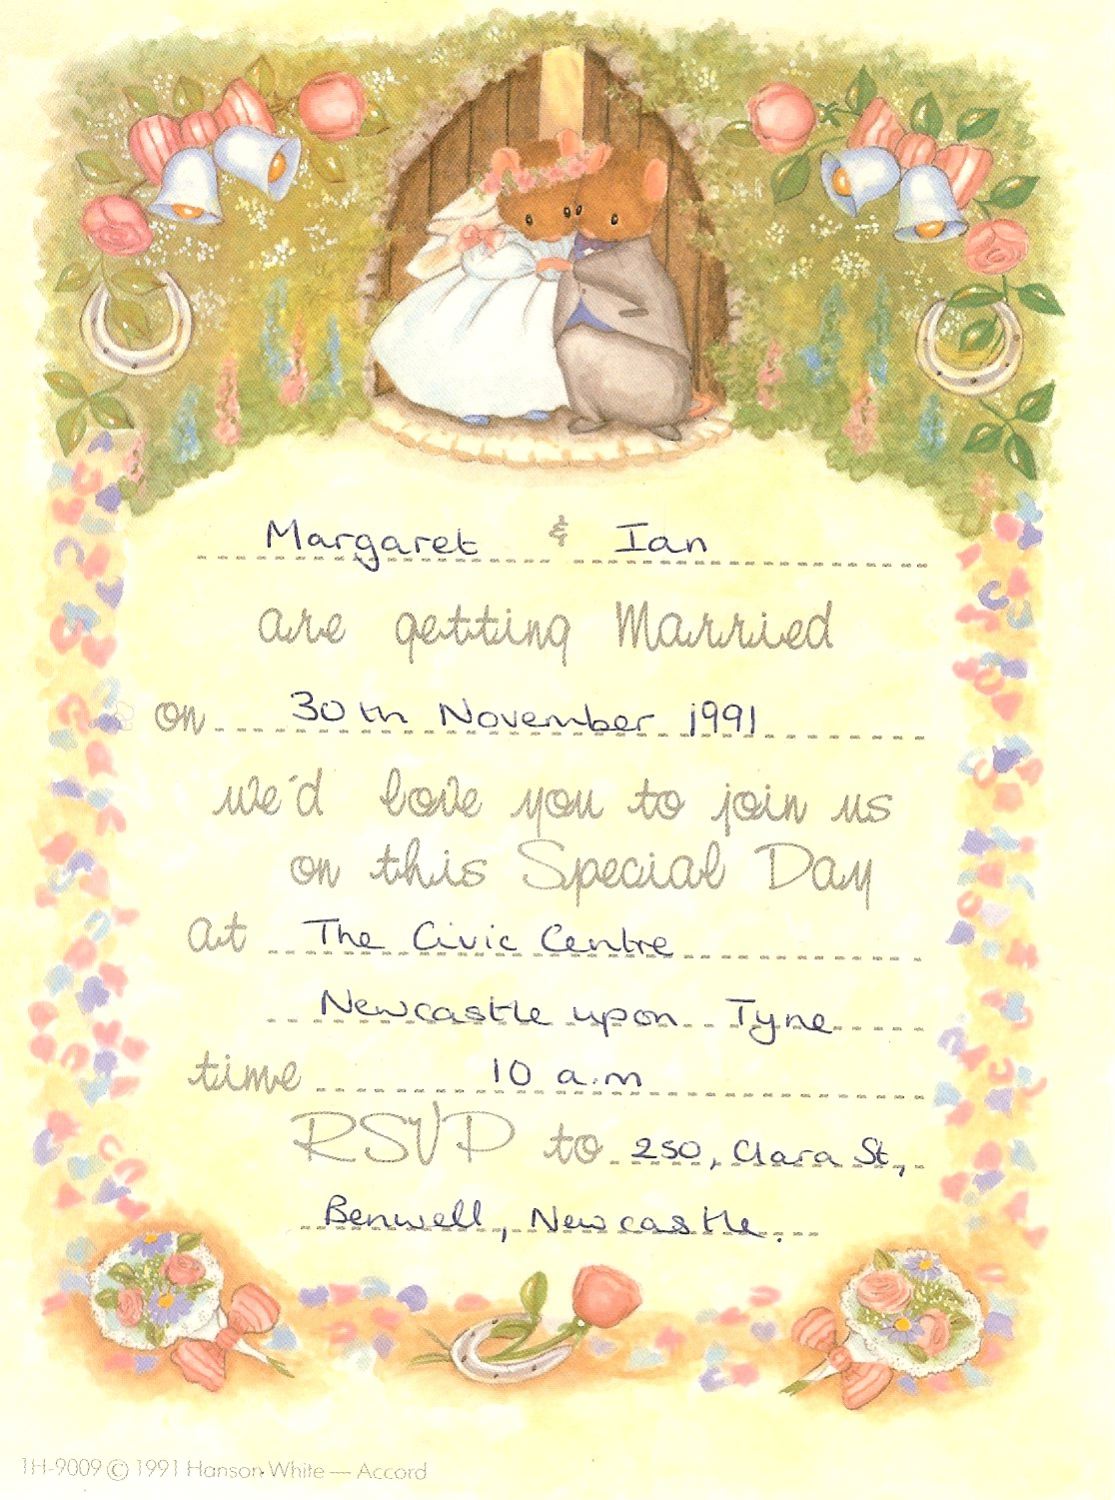 Margaret & Ian
are getting Married
on 30th November 1991
we'd love you to join us
on this Special Day
at The Civic Centre
Newcastle upon Tyne
time 10 a.m
RSVP to 250, Clara St,
Benwell, Newcastle.
TH-9009 © 1991 Hanson White — Accord